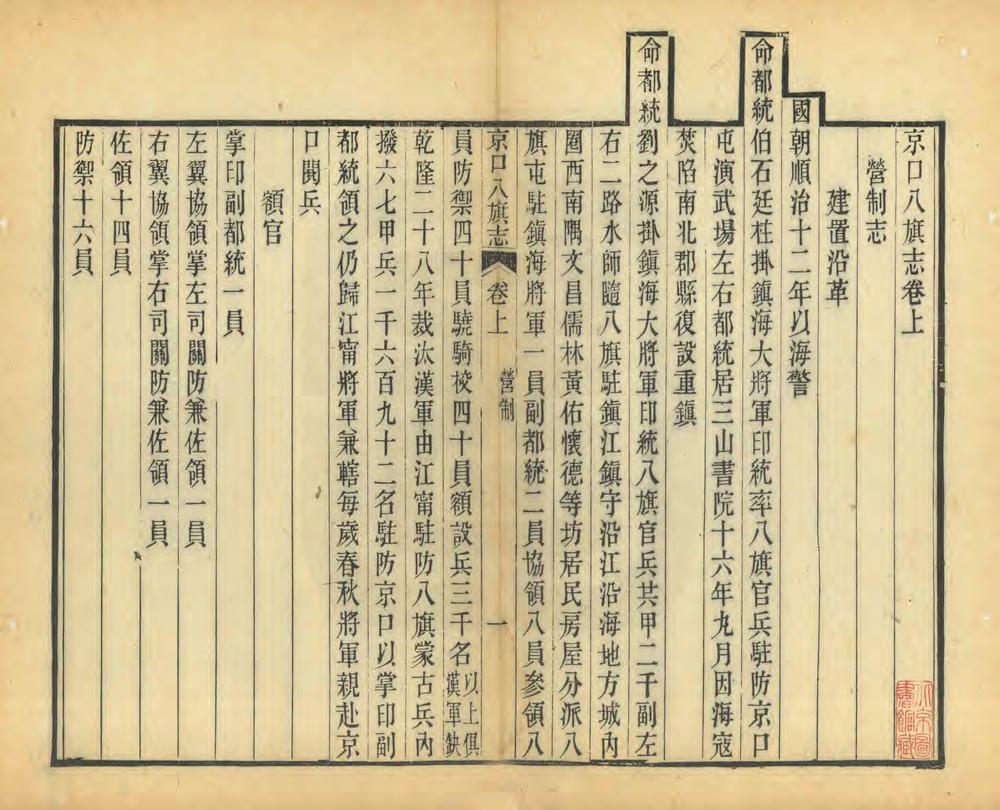 京口八旗志卷上
營制志
建置沿革
國朝順治十二年以海警
命都統伯石廷柱掛鎮海大將軍印統率八旗官兵駐防京口
屯演武場左右都統居三山書院十六年九月因海寇
焚陷南北郡縣復設重鎮
命都統劉之源掛鎮海大將軍印統八旗官兵共甲二千副左
右二路水師隨八旗駐鎮江鎮守沿江沿海地方城內
圈西南隅文昌儒林黃佑懷德等坊居民房屋分派八
旗屯駐鎮海將軍一員副都統二員協領八員參領八
京口八旗志 卷上 營制 一
員防禦四十員驍騎校四十員額設兵三千名以上俱漢軍缺
乾隆二十八年裁汰漢軍由江甯駐防八旗蒙古兵內
撥六七甲兵一千六百九十二名駐防京口以掌印副
都統領之仍歸江甯將軍兼轄每歲春秋將軍親赴京
口閱兵
額官
掌印副都統一員
左翼協領掌左司關防兼佐領一員
右翼協領掌右司關防兼佐領一員
佐領十四員
防禦十六員